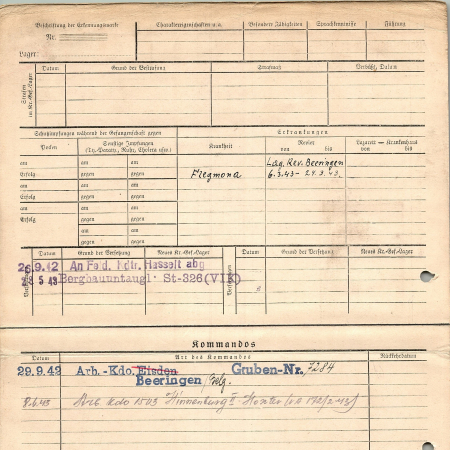 Beschriftung der Erkennungsmarke
Nr.
Lager:
Charaktereigenschaften u. a.
Besondere Fähigkeiten
Sprachkenntnisse
Führung
Strafen im Kr.-Gef.-Lager
Datum
Grund der Bestrafung
Strafmaß
Verbüßt, Datum
Schutzimpfungen während der Gefangenschaft gegen
Erkrankungen
Pocken
Sonstige Impfungen
(Ty.-Paraty., Ruhr, Cholera usw.)
Krankheit
Revier
von bis
Lazarett — Krankenhaus
von bis
am am
Erfolg gegen
am am
Erfolg gegen
am am
Erfolg gegen
am
gegen
am
gegen
Flegmona
Lag. Rev. Beeringen
6.3.43 - 29.3.43.
Datum
Grund der Versetzung
Neues Kr.-Gef.-Lager
Datum
Grund der Versetzung
Neues Kr.-Gef.-Lager
26.9.42 An Feld. Kdtr. Hasselt abg
5 43 Bergbauuntaugl. St-326 (VIK)
Kommandos
Datum
Art des Kommandos
Rückkehrdatum
29.9.42 Arb.-Kdo. Eisden Gruben-Nr. 7284
Beeringen/Belg.
8.6.43 Arb. Kdo 1503